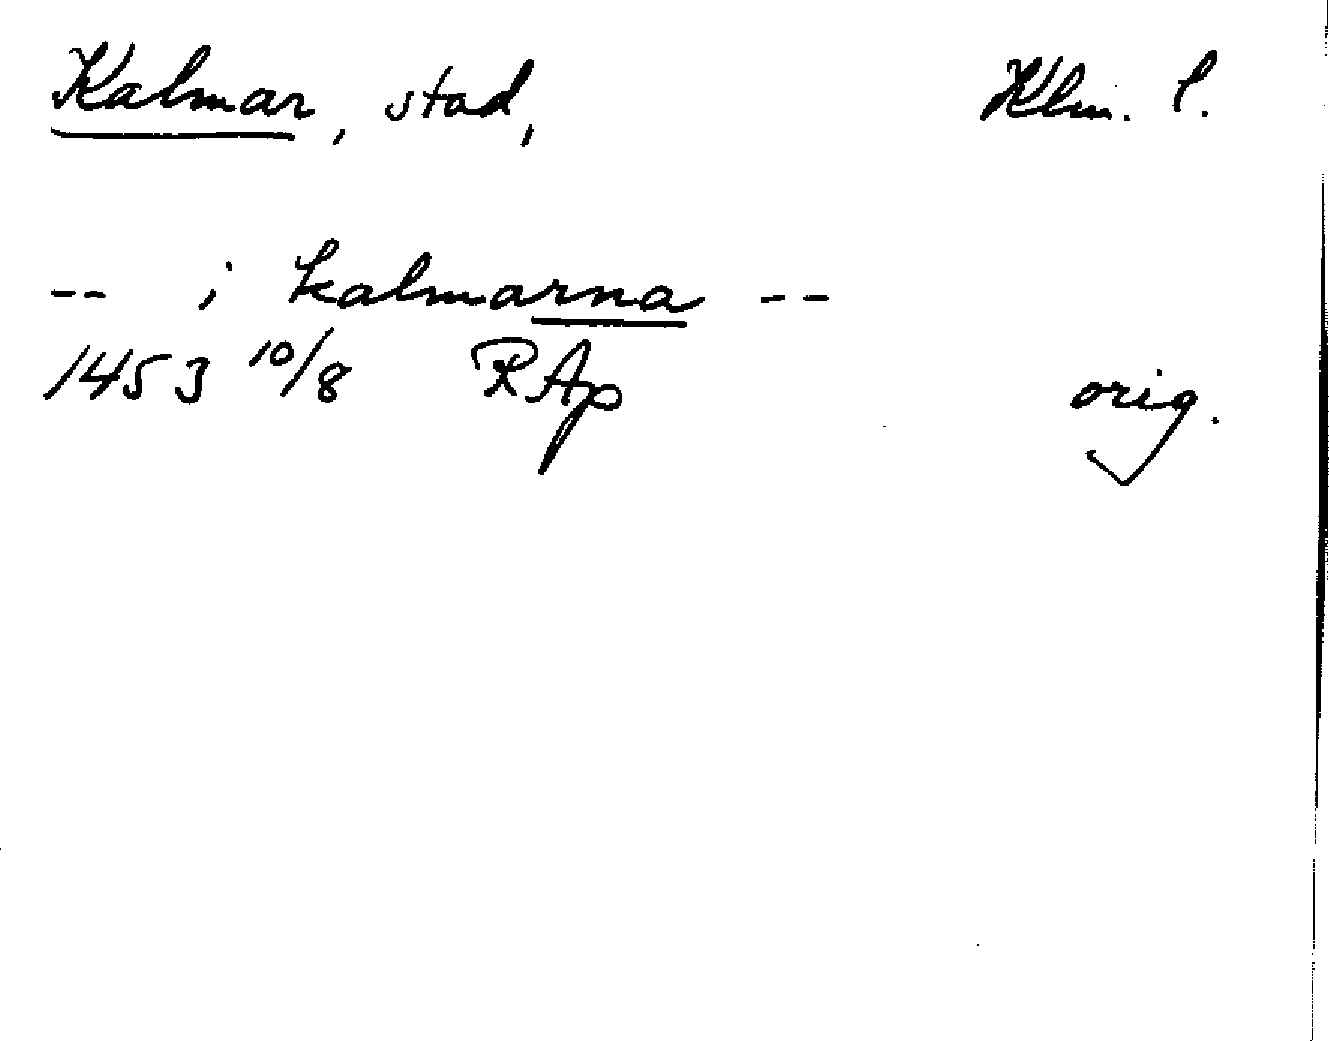 Kalmar, stad, Klm. l.
-- i kalmarna --
1453 10/8 RAp orig.